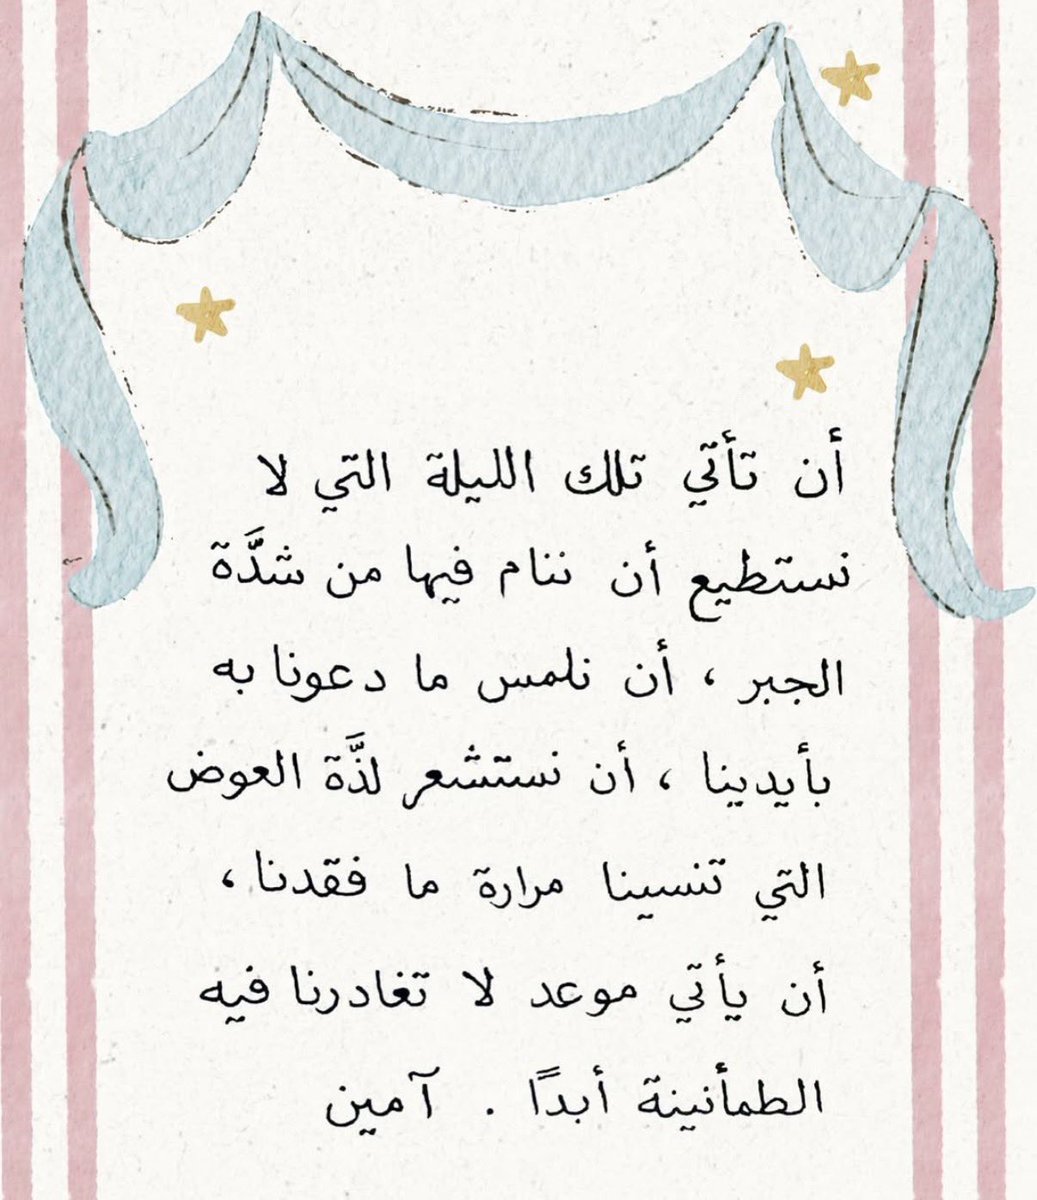 أن تأتي تلك الليلة التي لا
نستطيع أن ننام فيها من شدَّة
الجبر ، أن نلمس ما دعونا به
بأيدينا ، أن نستشعر لذَّة العوض
التي تنسينا مرارة ما فقدنا ،
أن يأتي موعد لا تغادرنا فيه
الطمأنينة أبدًا . آمين